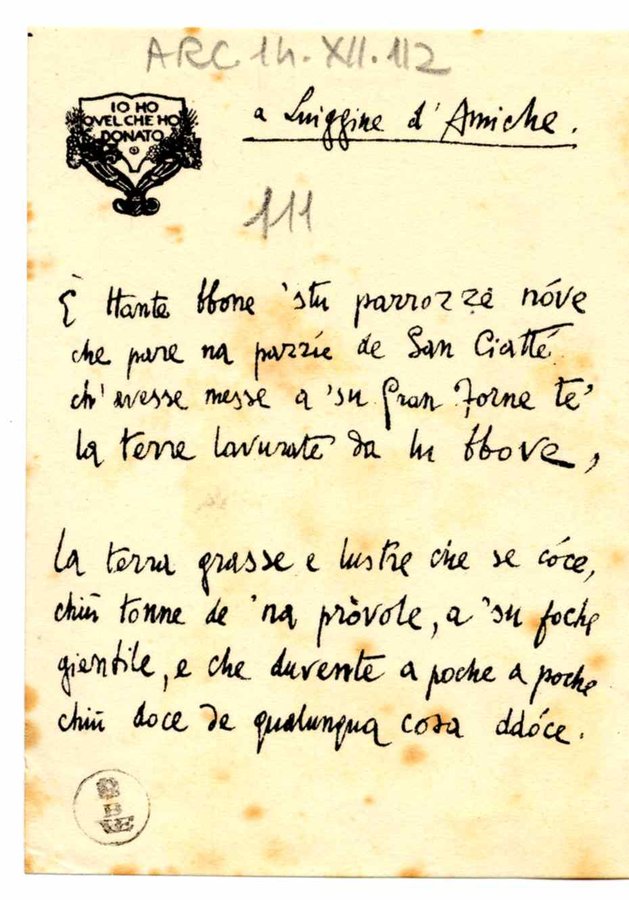 ARC 14.XII.112
IO HO
QVEL CHE HO
DONATO
a Luiggine d'Amiche.
111
È ttante bbone 'stu parrozze nóve
che pare na pazzíe de San Ciatté
ch'avesse messe a 'su Gran Forne te'
la terre lavurate da lu bbove,
la terra grasse e lustre che se cóce,
chiù tonne de 'na pròvole, a 'su foche
gientile, e che duvente a poche a poche
chiù doce de qualunqua cosa ddóce.